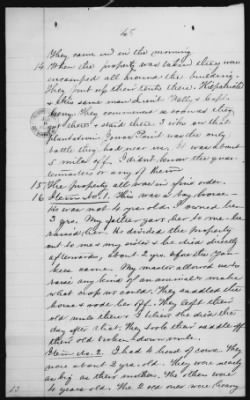 45
They came in in the morning
14 When the property was taken they were
encamped all around the building.
They put up their tents there. Kilpatrick
& this same man
They commenced as soon as they
got there & staid there. I
Jones' Point was the only
battle they had near us. It was about
5 miles off. I didn't know the quar-
termasters or any of them
15 The property all was in fine order.
16 Item No. 1. This was a bay horse.
He was not 4 years old. I owned him
2 yrs. My father gave her to me be-
He divided the property
out to me & my sister & he died directly
afterwards, about 2 yrs. before the Yan-
kees came. My master allowed us to
raise any kind of animals & make
what crop we could. They saddled the
horse & rode her off. They left their
old mule there & I believe she died the
day after that. They took their saddle off
their old broken down mule.
Item No. 2. I had 4 head of cows. They
were about 2 yrs. old. They were nearly
as big as their mothers. The others were
4 years old. The 2 old ones were heavy